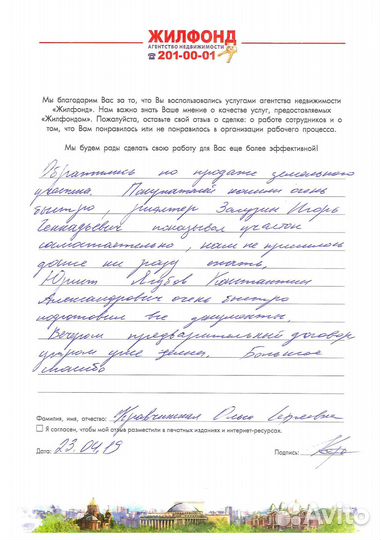 ЖИЛФОНД
АГЕНТСТВО НЕДВИЖИМОСТИ
☎ 201-00-01
Мы благодарим Вас за то, что Вы воспользовались услугами агентства недвижимости
«Жилфонд». Нам важно знать Ваше мнение о качестве услуг, предоставляемых
«Жилфондом». Пожалуйста, оставьте свой отзыв о сделке: о работе сотрудников и о
том, что Вам понравилось или не понравилось в организации рабочего процесса.
Мы будем рады сделать свою работу для Вас еще более эффективной!
Обратились по продаже земельного
участка. Покупателей нашли очень
быстро, риэлтер Замурин Игорь
Геннадьевич показывал участок
самостоятельно, нам не пришлось
даже ни разу ехать.
Юрист Ягубов Константин
Александрович очень быстро
подготовил все документы.
Вечером предварительный договор
утром уже деньги. Большое
спасибо
Фамилия, имя, отчество: Ольга Сергеевна
Я согласен, чтобы мой отзыв разместили в печатных изданиях и интернет-ресурсах.
Дата: 23.04.19 Подпись:
Avito